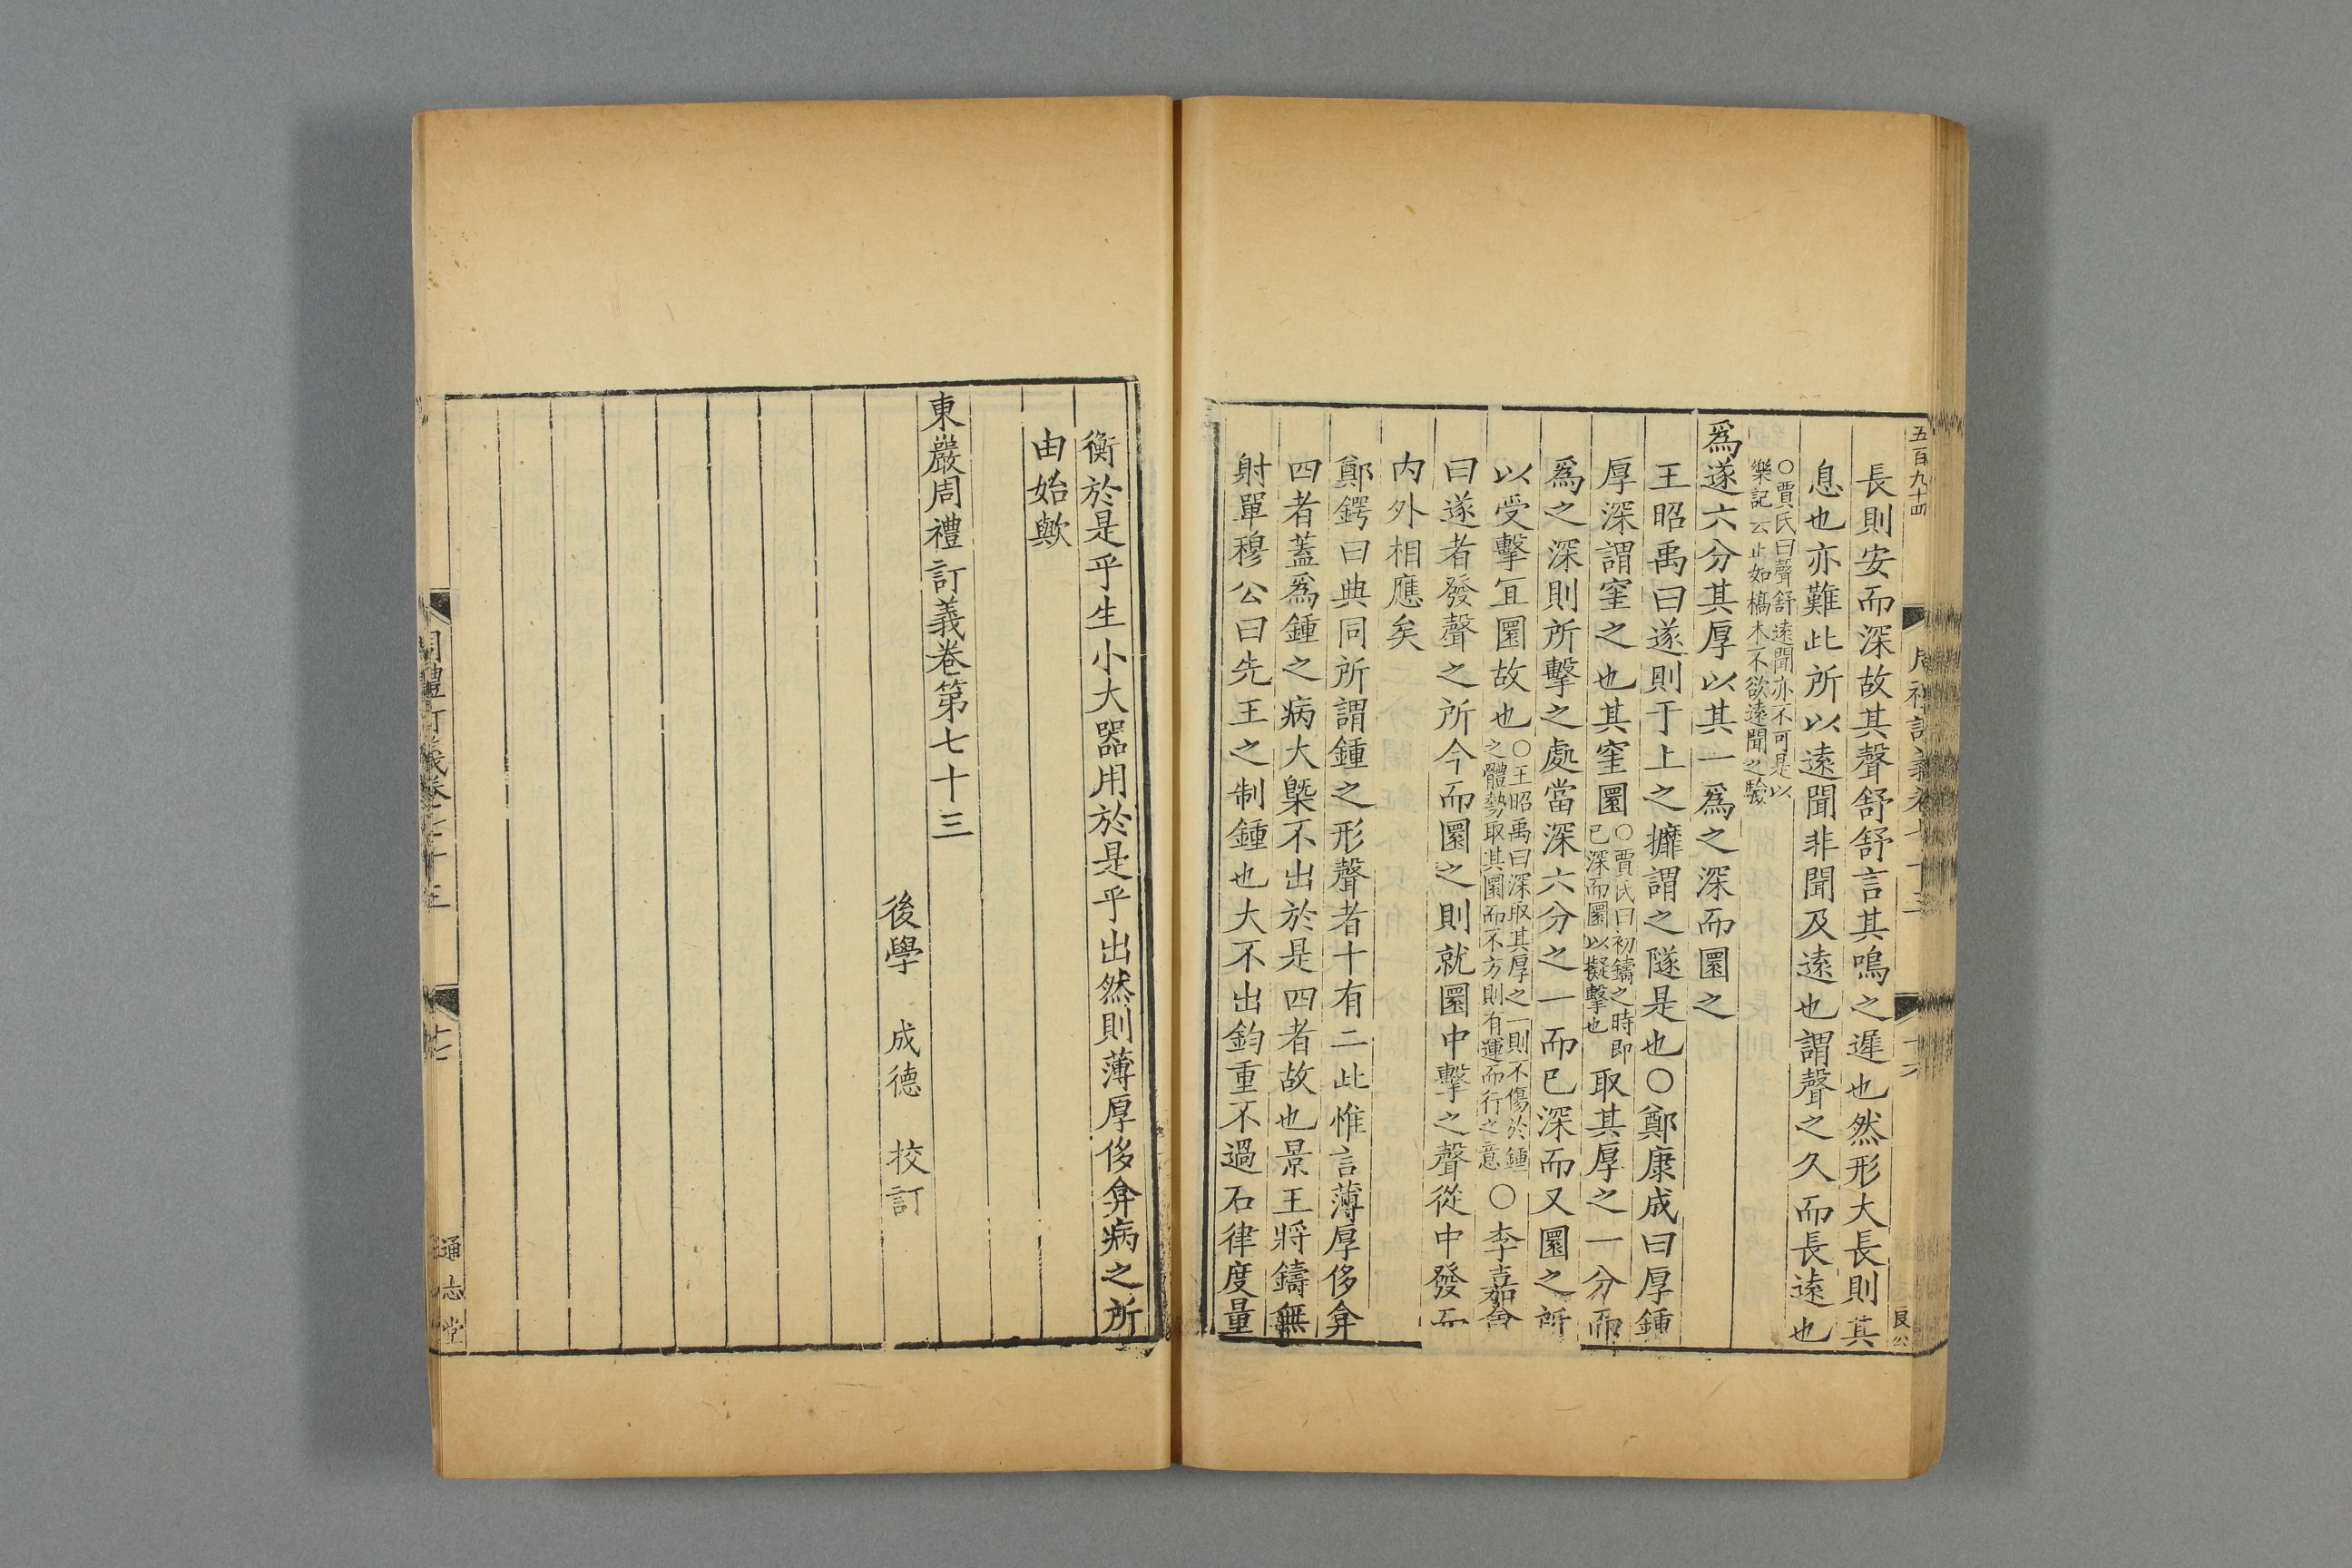 五百九十四
周禮訂義卷七十三
十六
良公
長則安而深故其聲舒舒言其鳴之遲也然形大長則其
息也亦難此所以遠聞非聞及遠也謂聲之久而長遠也
○賈氏曰聲舒遠聞亦不可是以
樂記云止如槁木不欲遠聞之驗
爲遂六分其厚以其一爲之深而圜之
王昭禹曰遂則于上之攠謂之隧是也○鄭康成曰厚鍾
厚深謂窐之也其窐圜○賈氏曰初鑄之時即已深而圜以擬擊也取其厚之一分而
爲之深則所擊之處當深六分之一而已深而又圜之所
以受擊冝圜故也○王昭禹曰深取其厚之一則不傷於鍾之體勢取其圜而不方則有運而行之意○李嘉會
曰遂者發聲之所今而圜之則就圜中擊之聲從中發而
内外相應矣
鄭鍔曰典同所謂鍾之形聲者十有二此惟言薄厚侈弇
四者蓋爲鍾之病大槩不出於是四者故也景王將鑄無
射單穆公曰先王之制鍾也大不出鈞重不過石律度量
衡於是乎生小大器用於是乎出然則薄厚侈弇病之所
由始歟
東巖周禮訂義卷第七十三
後學 成德 校訂
周禮訂義卷七十三
十七
通志堂